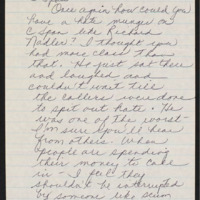 Once again how could you
have a hate monger on
C Span like Richard
I thought you
had more class than
that. He just sat there
and laughed and
couldn't wait till
the callers were done
to spit out hate. He
was one of the worst-
I'm sure you'll hear
from others. When
people are spending
their money to call
in - I feel they
shouldn't be interrupted
by someone like